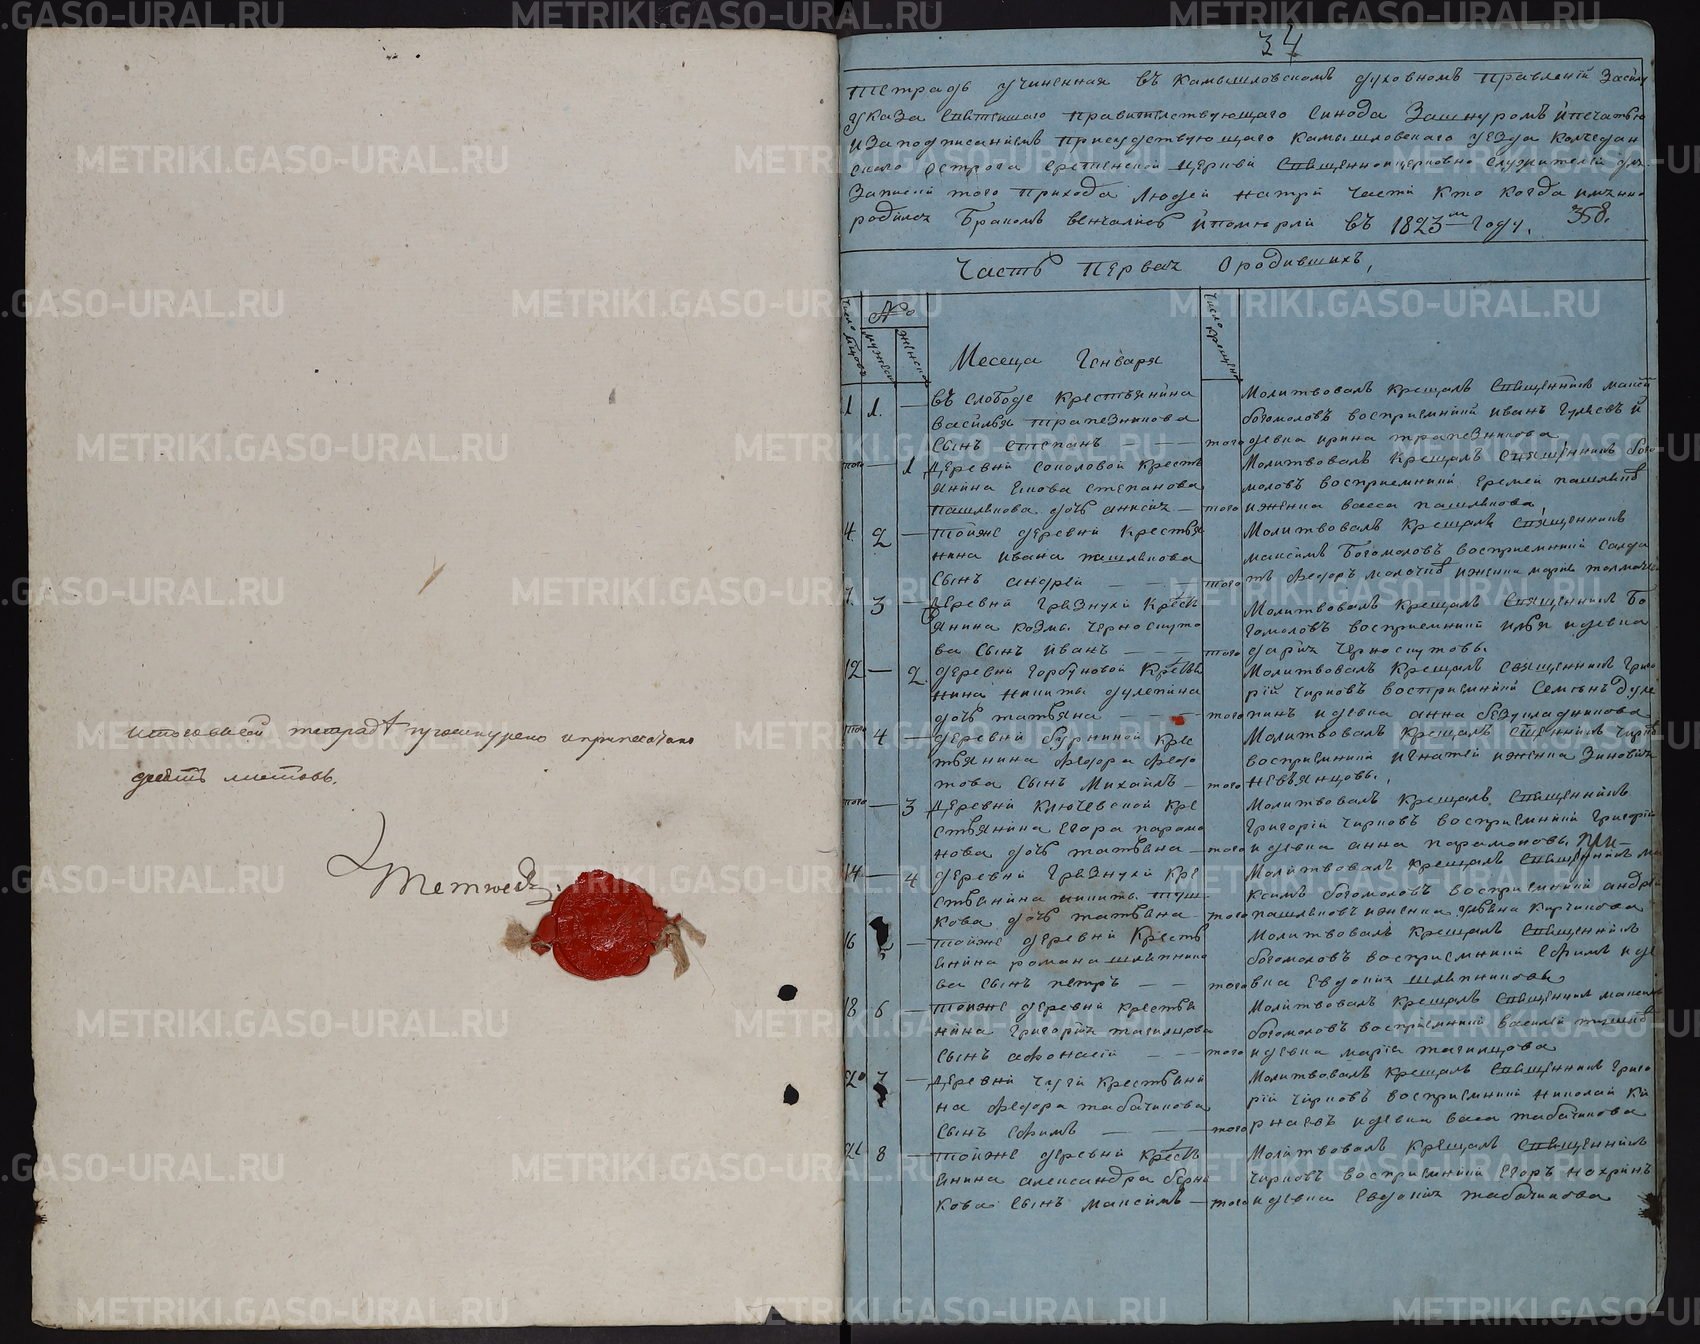 итого въ сей тетрадѣ прошнурено и припечатано
листовъ.
34
Тетрадь учиненная въ Камышловскомъ духовномъ Правленіи Засилу
указа Святейшаго Правителствующаго Синода Зашнуромъ ипечатью
изаподписаніемъ присудствующаго Камышловскаго уезда Колчедан
скаго острога Сретенской церкви Священноицерковно служителей для
Записки того Прихода Людей натри Части Кто Когда имянно
родился Бракомъ венчались ипомерли въ 1823м Году. 358.
Часть Первая Ородившихъ,
№
Месеца Генваря
1 1. — въ слободе Крестьянина
Василья трапезникова
Сынъ Степанъ — — того
Молитвовалъ Крещалъ Священникъ максим
богомоловъ восприемники иванъ гуляевъ и
девка ирина трапезникова
того — 1 деревни соколовой Кресть
янина Степанова
Пашлыкова дочь — того
Молитвовалъ Крещалъ Священникъ бого
моловъ восприемники Еремей пашлыковъ
иженка васса пашлыкова
4 2 — тойже деревни Крестья
нина ивана пашлыкова
Сынъ андрей — — — того
Молитвовалъ Крещалъ Священникъ
максимъ Богомоловъ восприемники Салда
тъ федоръ иженка марья
7. 3 — деревни грязнухи Кресть
янина козмы Черноскуто
ва Сынъ иванъ — — — того
Молитвовалъ Крещалъ Священникъ Бо
гомоловъ восприемники илья идевка
дарья черноскутовы
12 — 2 деревни горбуновой Крестья
нина никиты дулепина
дочь татьяна — — — того
Молитвовалъ Крещалъ Священникъ григо
рій чирковъ восприемники Семенъ дуле
пинъ идевка анна безукладникова
того 4 — деревни бурниной Кре
стьянина федора федо
това Сынъ Михаилъ — того
Молитвовалъ Крещалъ Священникъ чирковъ
восприемники игнатей иженка Зиновья
невьянцовы.
того — 3 деревни Ключевской Кре
стьянина Егора парамо
нова дочь татьяна — того
Молитвовалъ Крещалъ Священникъ
григорій чирковъ восприемники григорій
идевка анна парамоновы
14 — 4 деревни грязнухи Кре
стьянина никиты
кова дочь татьяна — того
Молитвовалъ Крещалъ Священникъ ма
ксимъ богомоловъ восприемники андрей
пашлыковъ иженка ульяна
16 — тойже деревни Кресть
янина романа шляпнико
ва Сынъ петръ — — того
Молитвовалъ Крещалъ Священникъ
богомоловъ восприемники Ефимъ иде
вка Евдокия шляпниковы
18 6 — тойже деревни Крестья
нина григорія тагилцова
Сынъ афонасій — — того
Молитвовалъ Крещалъ Священникъ максимъ
богомоловъ восприемники василей
идевка маріа тагилцова
20 7 — деревни чуги Крестьяни
на федора табатчикова
Сынъ Ефимъ — — — того
Молитвовалъ Крещалъ Священникъ григо
рій чирковъ восприемники николай Ки
рнаевъ идевка васа табатчикова
21 8 — тойже деревни Кресть
янина александра
кова Сынъ максимъ — того
Молитвовалъ Крещалъ Священникъ
чирковъ восприемники Егоръ
идевка Евдокия табатчикова
METRIKI.GASO-URAL.RU